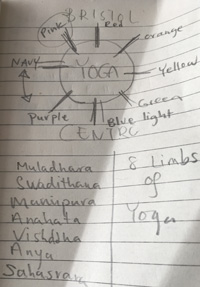 BRISTOL
Pink
Red
orange
NAVY
YOGA
Yellow
Green
Purple
Blue light
CENTRE
Muladhara
8 Limbs
Swadithana
of
Manipura
Yoga
Anahata
Vishddha
Anya
Sahasrara